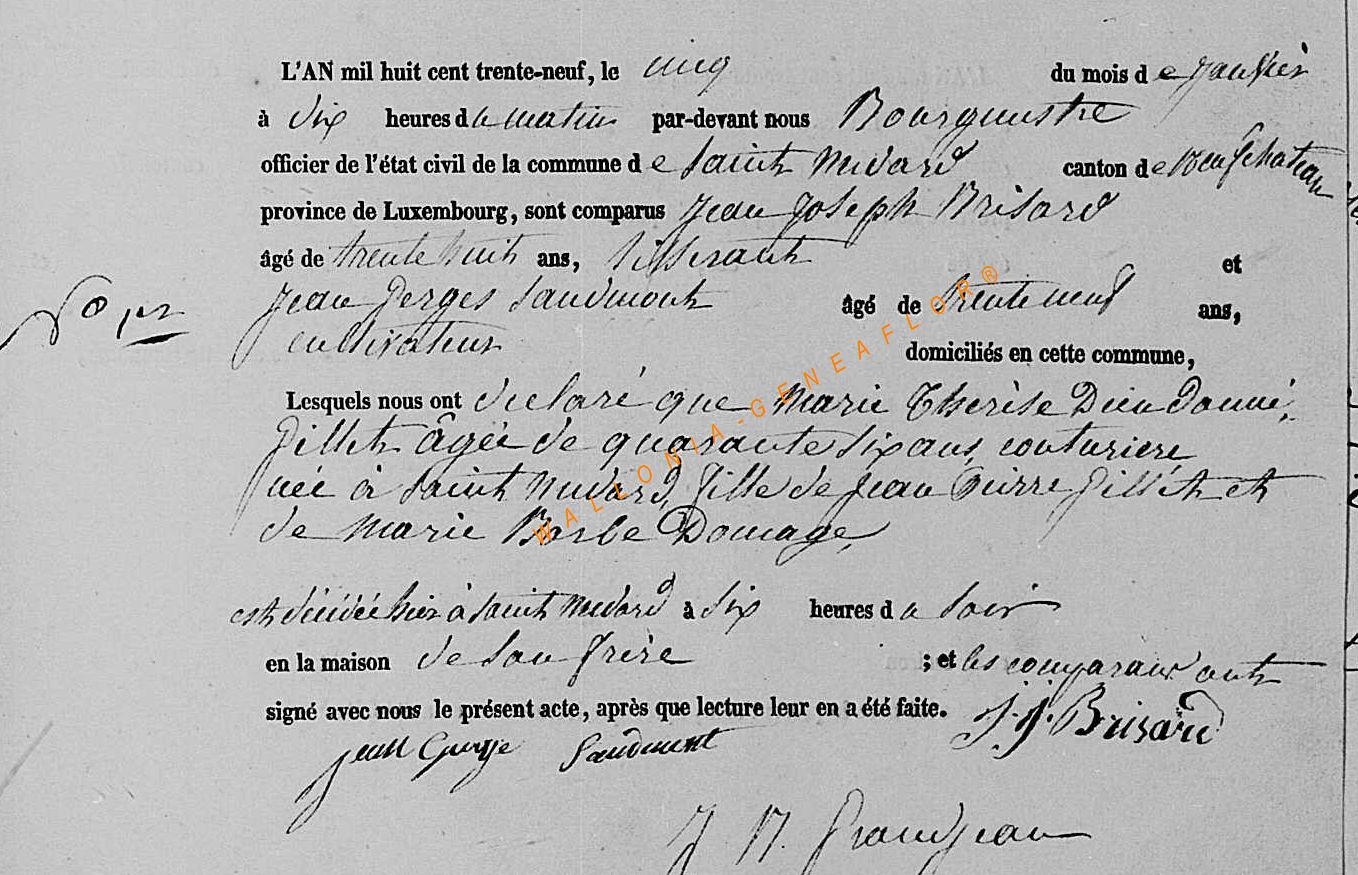 L'AN mil huit cent trente-neuf, le cinq du mois de janvier
à dix heures du matin par-devant nous Bourguestre
officier de l'état civil de la commune de Saint Médard canton de Neufchateau
province de Luxembourg, sont comparus Jean Joseph Brisard
âgé de trente huit ans, tisserant et
Jean Gorges Saudmont âgé de trente neuf ans,
cultivateur
domiciliés en cette commune,
Lesquels nous ont declaré que Marie Therèse Dieudonné,
Gillet âgée de quarante six ans, couturiere
née à Saint Médard, fille de Jean Pierre Gillet et
de Marie Barbe Domage,
est décédée hier à Saint Médard à six heures du soir
en la maison de son frère ; et les comparans ont
signé avec nous le présent acte, après que lecture leur en a été faite. J. J. Brisard
Jean George Saudmont
J. N. Grandjean
WALLONIA-GENEAFLOR®